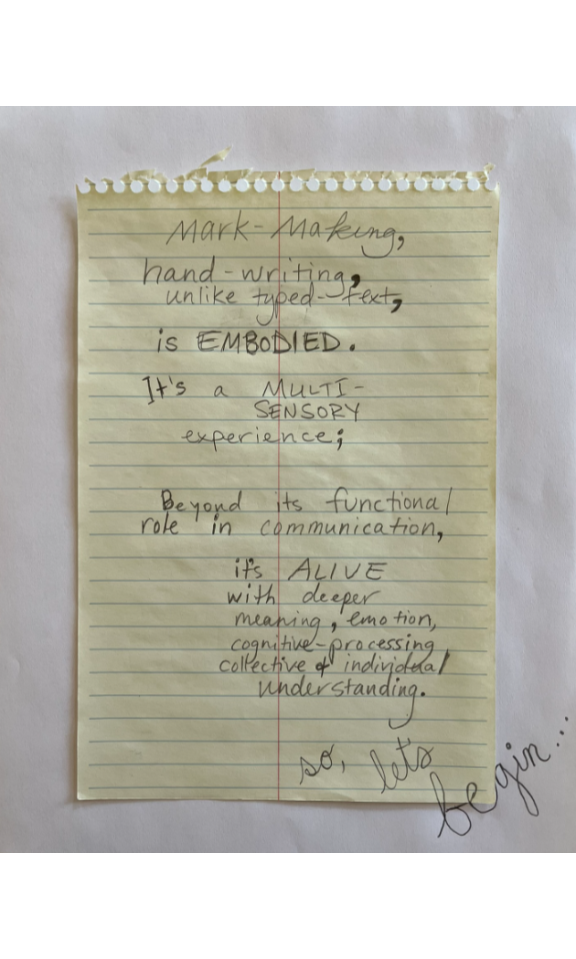 Mark-Making,
hand-writing,
unlike typed-text,
is EMBODIED.
It's a MULTI-
SENSORY
experience;
Beyond its functional
role in communication,
it's ALIVE
with deeper
meaning, emotion,
cognitive-processing
collective & individual
understanding.
so, let's
begin...